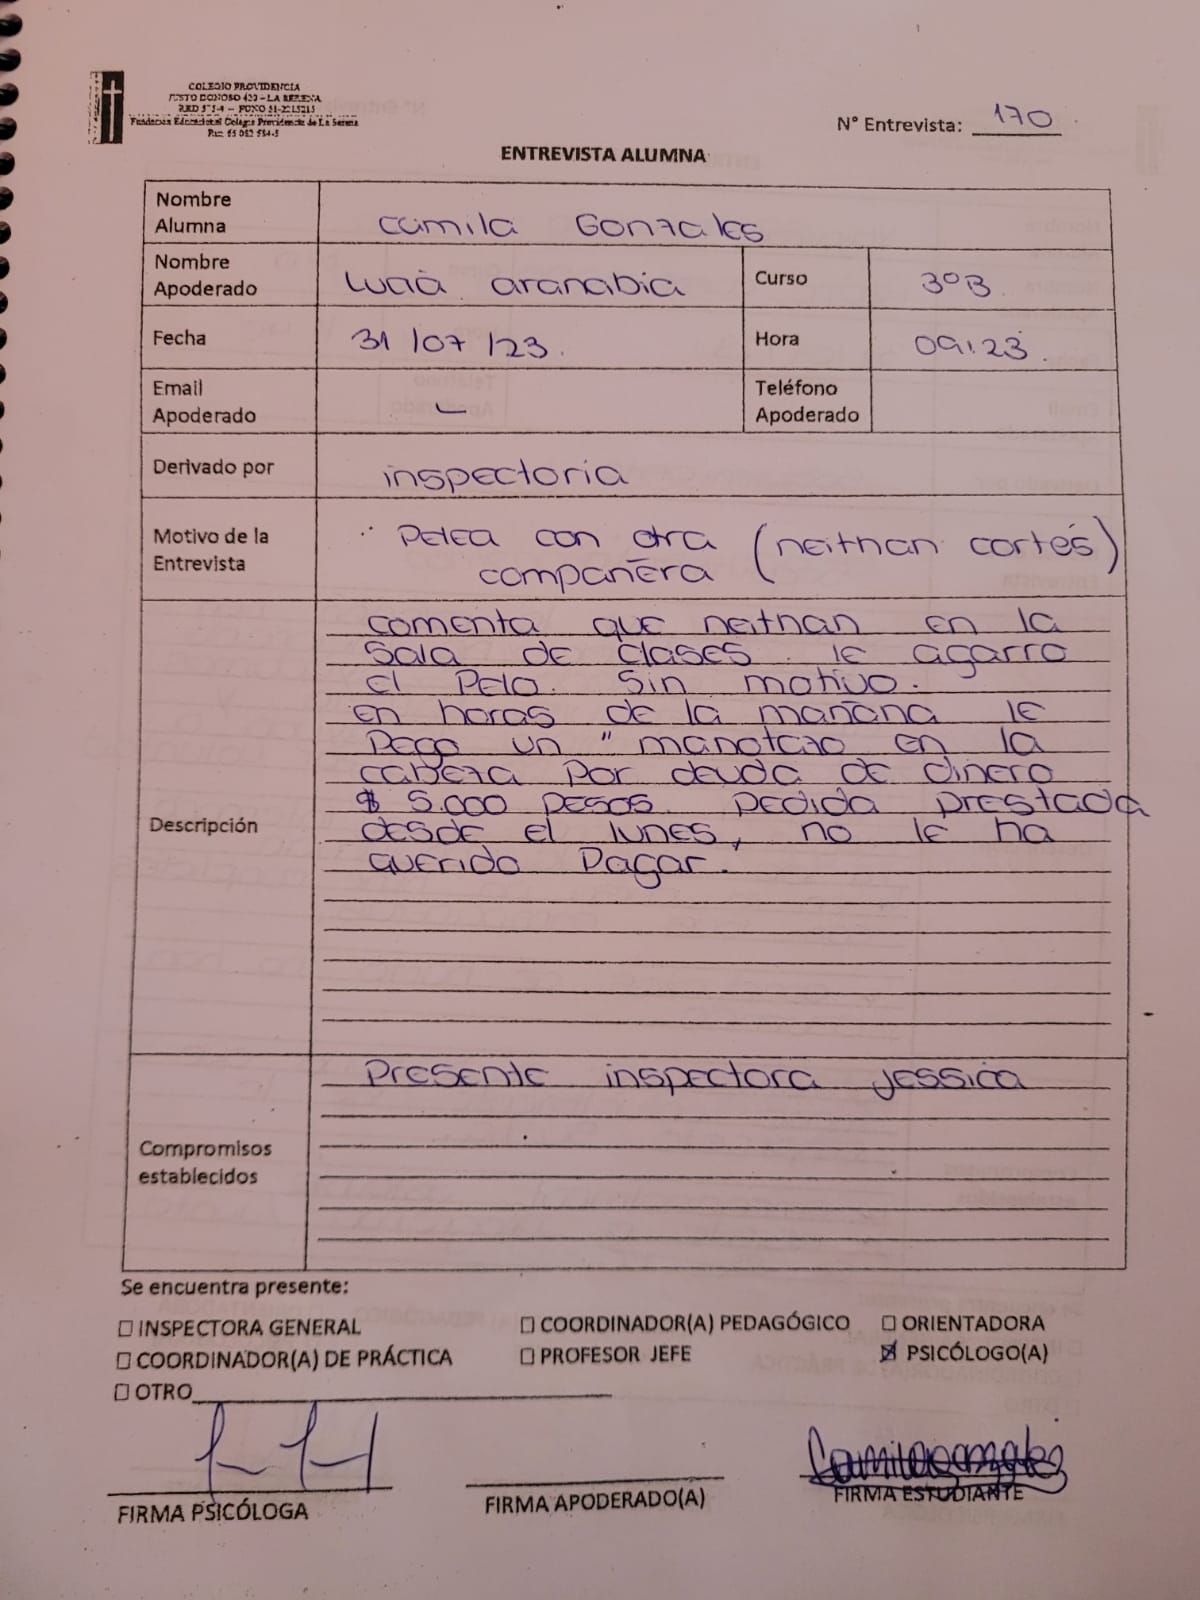 COLEGIO PROVIDENCIA
JUSTO DONOSO 420 – LA SERENA
Fundación Educacional Colegio Providencia de La Serena
N° Entrevista: 170
ENTREVISTA ALUMNA
Nombre Alumna camila Gonzales
Nombre Apoderado Lucia aranabia Curso 3°B
Fecha 31/07/23. Hora 09:23.
Email Apoderado – Teléfono Apoderado
Derivado por inspectoria
Motivo de la Entrevista Pelea con otra (neithan cortés)
compañera
Descripción
comenta que neithan en la
Sala de clases. le agarro
el Pelo. Sin motivo.
en horas de la mañana le
Pego un " manotazo en la
cabeza Por deuda de dinero
$ 5.000 pesos. Pedida prestada
desde el lunes, no le ha
querido Pagar.
Compromisos establecidos
Presente inspectora Jessica
Se encuentra presente:
☐ INSPECTORA GENERAL ☐ COORDINADOR(A) PEDAGÓGICO ☐ ORIENTADORA
☐ COORDINADOR(A) DE PRÁCTICA ☐ PROFESOR JEFE ☒ PSICÓLOGO(A)
☐ OTRO
Camila Gonzales
FIRMA PSICÓLOGA FIRMA APODERADO(A) FIRMA ESTUDIANTE